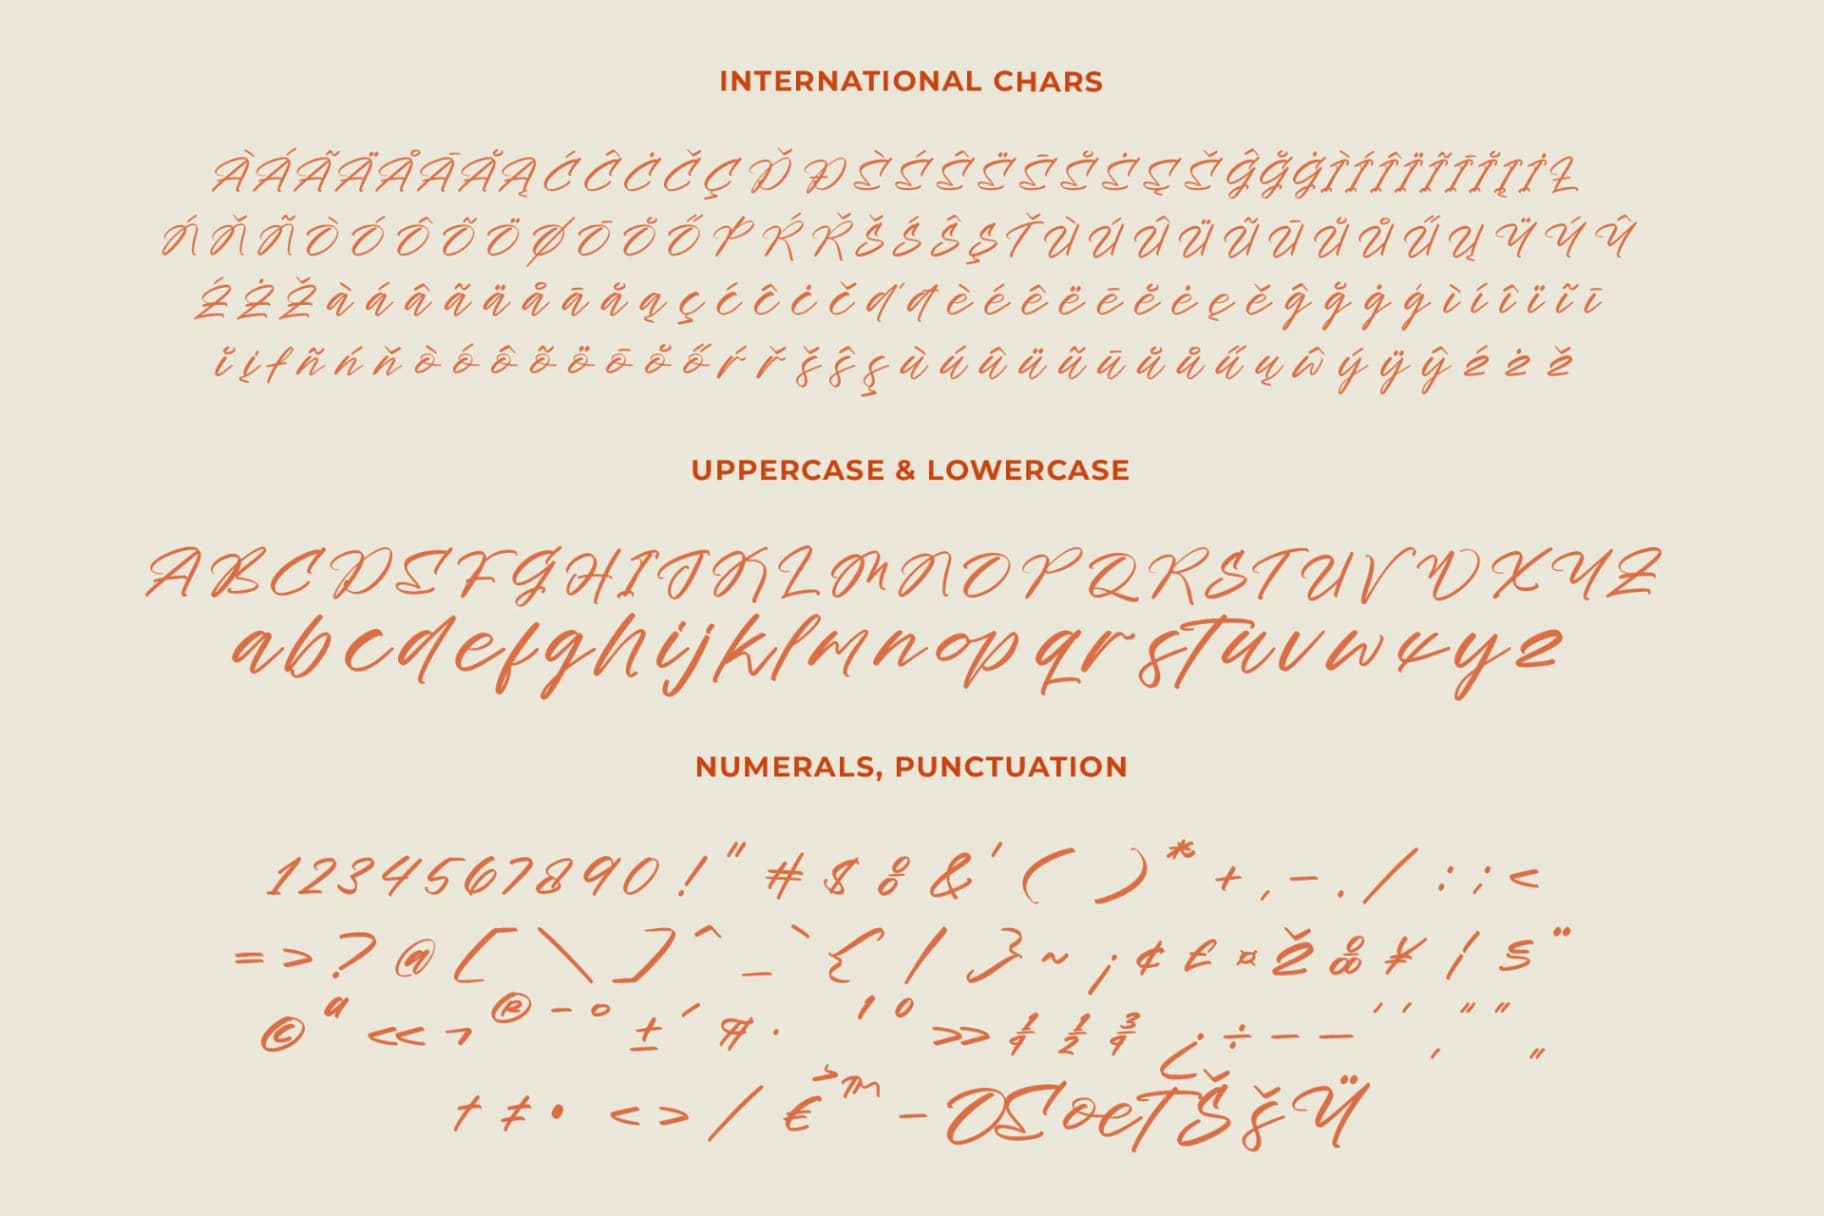 INTERNATIONAL CHARS
ÀÁÃÄÅĀÅĄĆĈĊČÇĎĐÈÉÊËĒĚĖĘĚĜĞĠÌÍÎÏĨĪĬĮİŁ
ŃŇÑÒÓÔÕÖØŌŎŐPŔŘŠŚŜŞŤÙÚÛÜŨŪŬŮŰŲŸÝŶ
ŹŻŽàáâãäåāăąçćĉċčďđèéêëēĕėęěĝğġģìíîïĩī
ĭįłñńňòóôõöōŏőŕřšŝşùúûüũūŭůűųŵýÿŷźżž
UPPERCASE & LOWERCASE
ABCDEFGHIJKLMNOPQRSTUVWXYZ
abcdefghijklmnopqrstuvwxyz
NUMERALS, PUNCTUATION
1234567890!"#$%&'()*+,-./:;<
=>?@[\]^_`{|}~¡¢£¤Ž‰¥¦§¨
©ª«¬®¯°±´¶·¹º»¼½¾¿÷–—‘’‚“”„
†‡•‹›⁄€™−ŒœŤŠšŸ